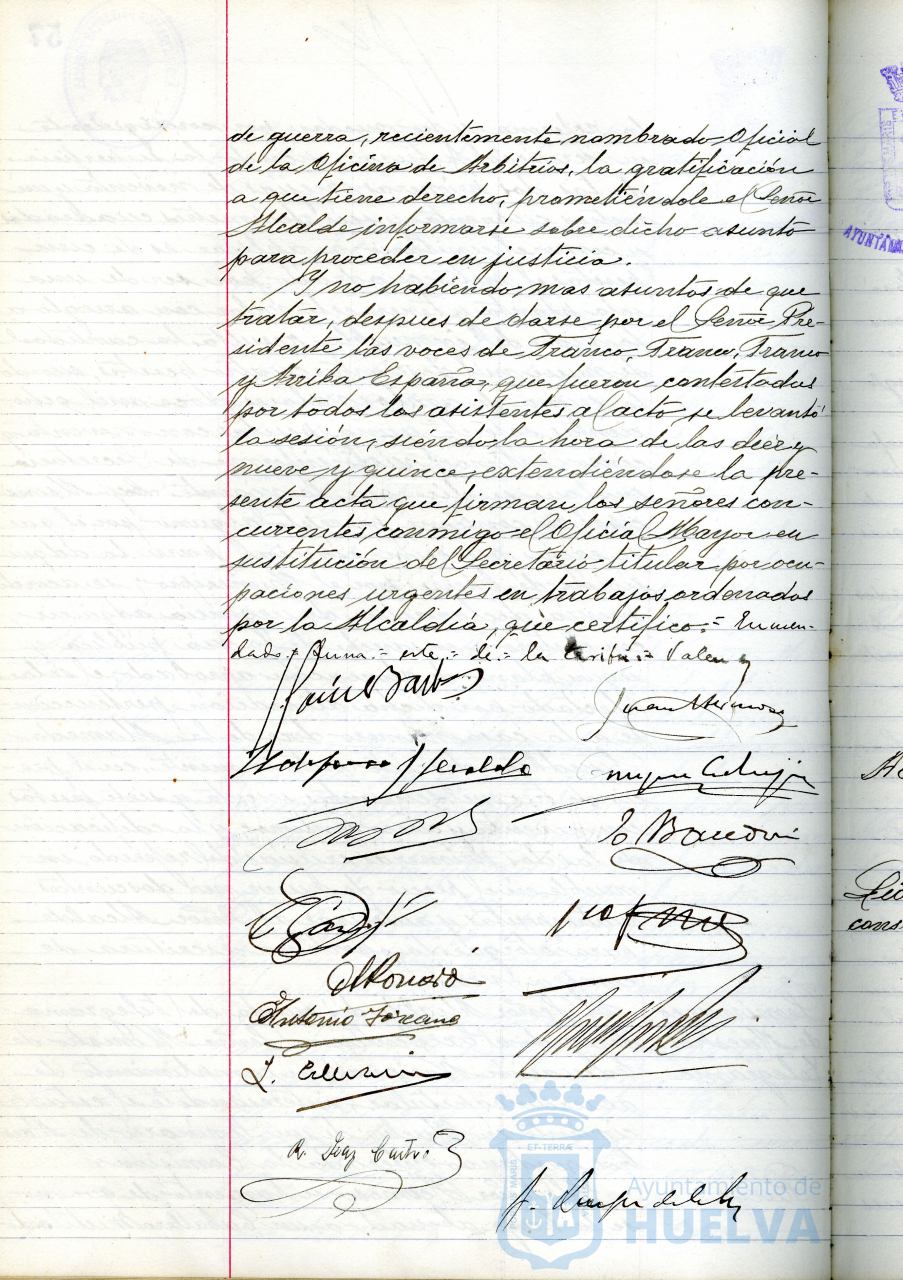 de guerra, recientemente nombrado Oficial
de la Oficina de Arbitrios, la gratificación
a que tiene derecho, prometiéndole el Señor
Alcalde informarse sobre dicho asunto
para proceder en justicia.
Y no habiendo mas asuntos de que
tratar, despues de darse por el Señor Pre-
sidente las voces de Franco, Franco, Franco
y Arriba España, que fueron contestadas
por todos los asistentes al acto, se levantó
la sesión, siendo la hora de las diez y
nueve y quince, extendiéndose la pre-
sente acta que firman los señores con-
currentes conmigo el Oficial Mayor en
sustitución del Secretario titular por ocu-
paciones urgentes en trabajos ordenados
por la Alcaldía, que certifico.= Enmen-
dado= =este.= de.= la Valen
Antonio
R. Díaz Castro
ET TERRÆ
MARIS
Ayuntamiento de
HUELVA